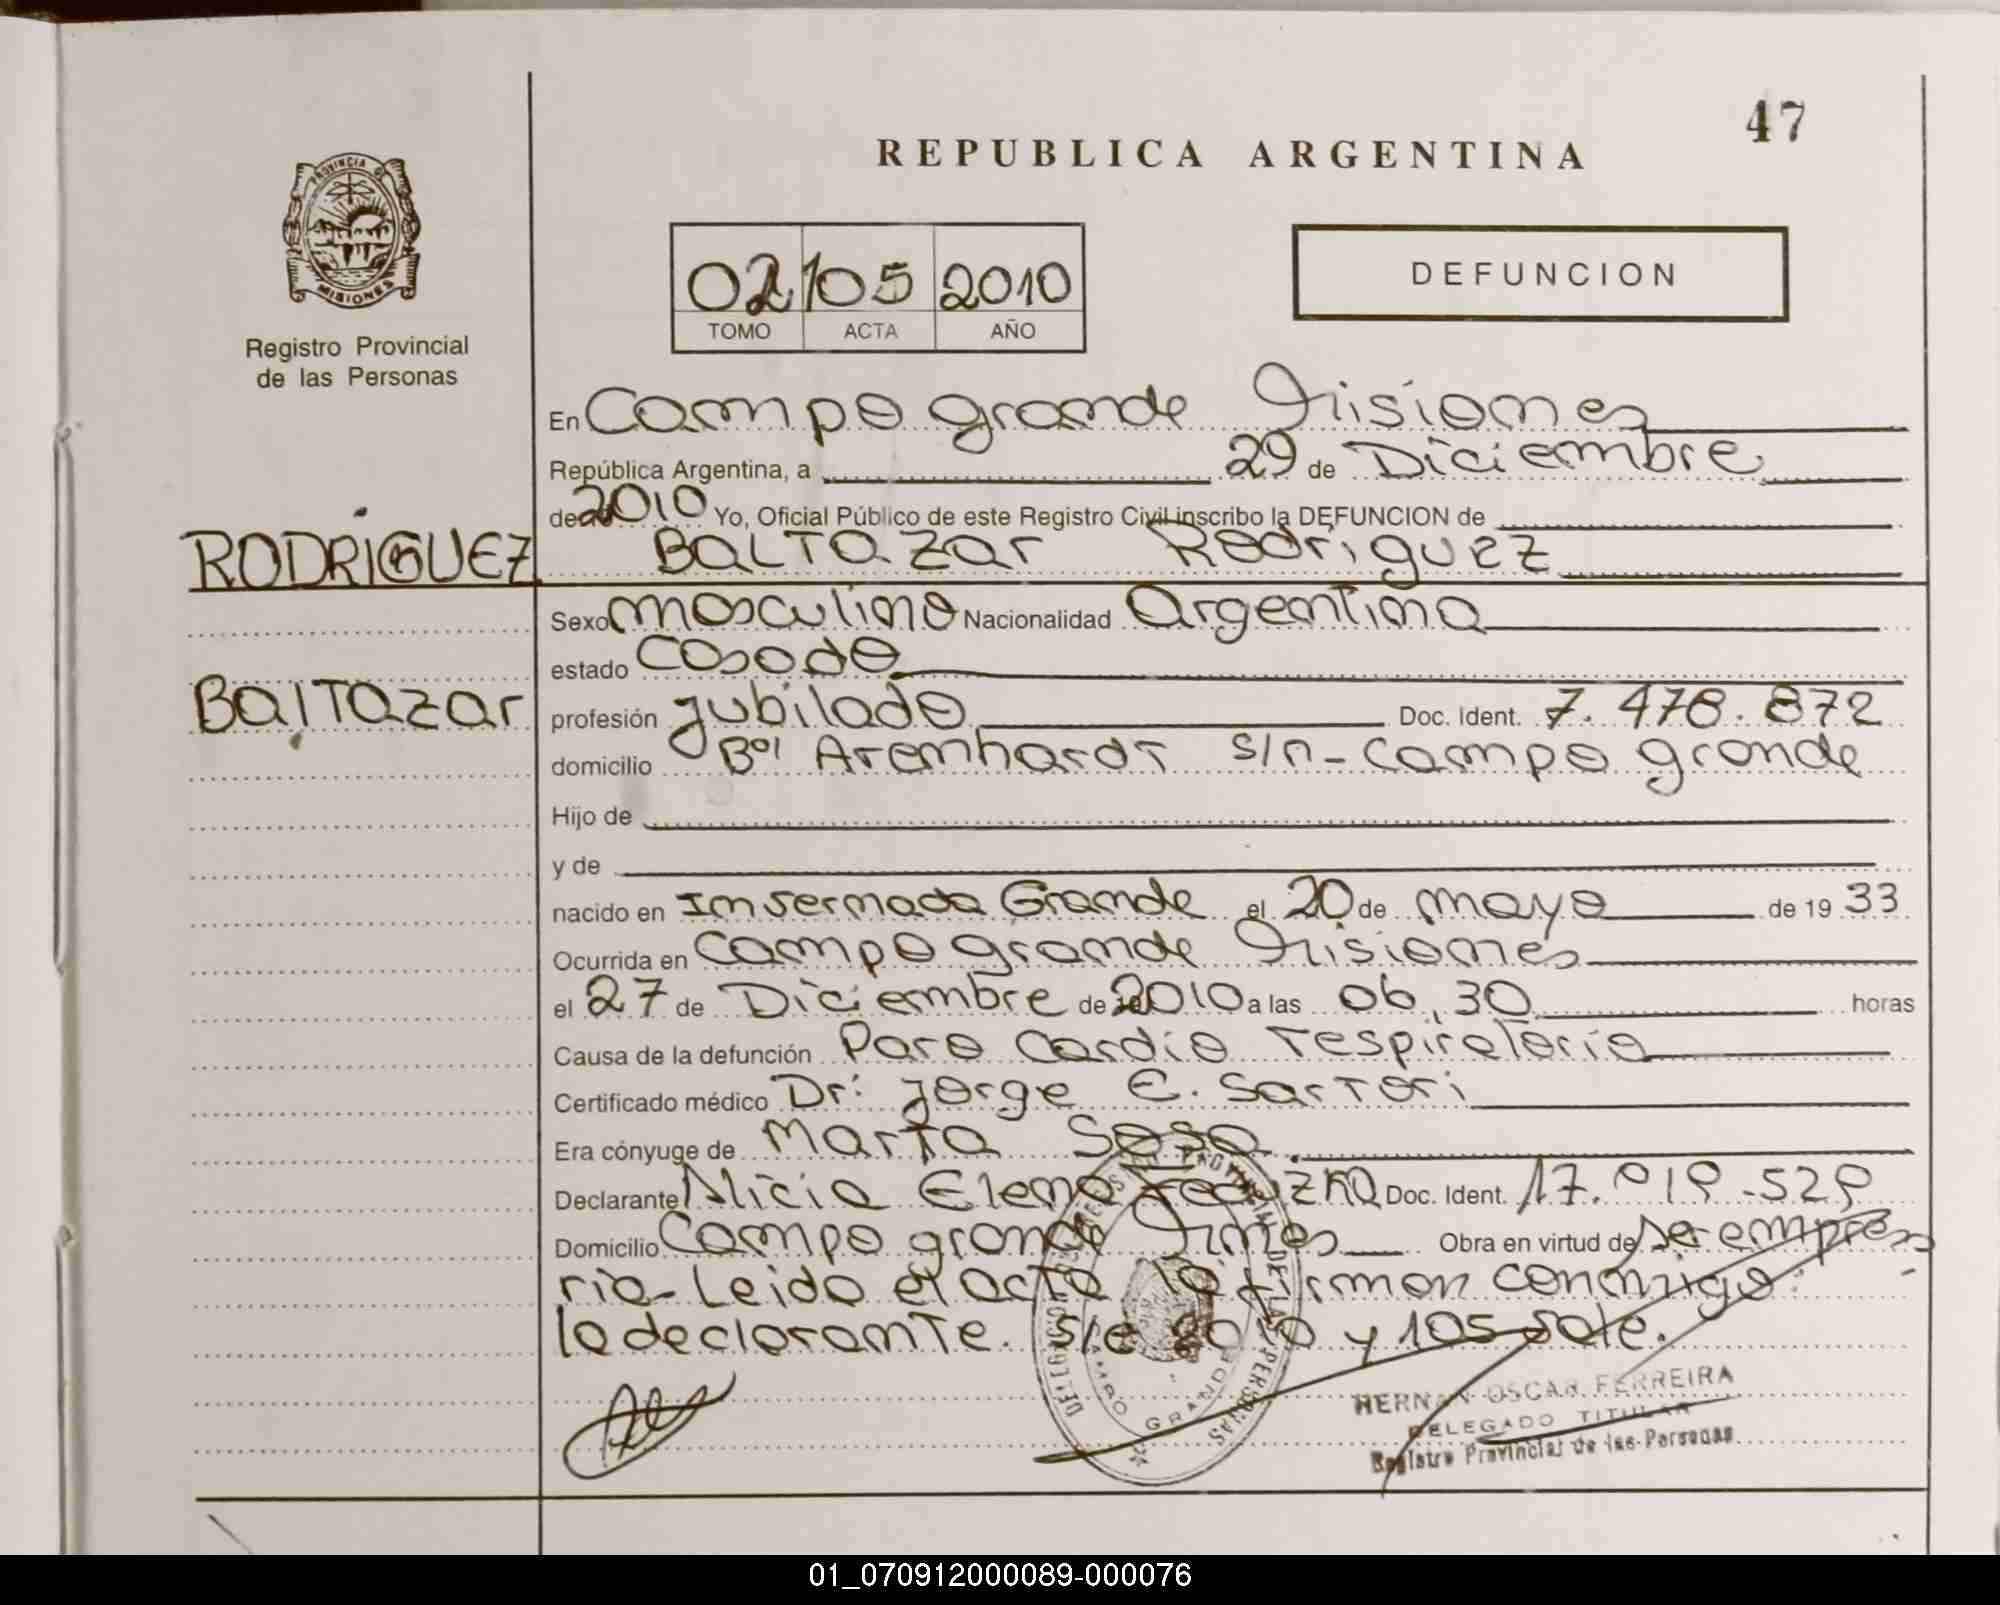 47
REPUBLICA ARGENTINA
PROVINCIA DE
MISIONES
Registro Provincial
de las Personas
02 105 2010
TOMO ACTA AÑO
DEFUNCION
En Campo grande Misiones
República Argentina, a 29 de Diciembre
de 2010 Yo, Oficial Público de este Registro Civil inscribo la DEFUNCION de
RODRIGUEZ BALTAZAR Rodriguez
Sexo masculino Nacionalidad Argentina
estado Casado
BalTazar profesión jubilado Doc. Ident. 7.478.872
domicilio Bº Arenhardt s/n - Campo grande
Hijo de
y de
nacido en Invernada Grande el 20 de mayo de 19 33
Ocurrida en Campo grande Misiones
el 27 de Diciembre de 2010 a las 06,30 horas
Causa de la defunción Paro Cardio respiratorio
Certificado médico Dr: Jorge E. Sartori
Era cónyuge de Marta Sosa
Declarante Alicia Elena Doc. Ident. 17.019.529
Domicilio Campo grande Mnes Obra en virtud de ser empresa
ria- Leida el acta la firman conmigo
la declarante. S/e 2010 y 105 vale.
HERNAN OSCAR FERREIRA
DELEGADO TITULAR
Registro Provincial de las Personas
CAMPO GRANDE
01_070912000089-000076